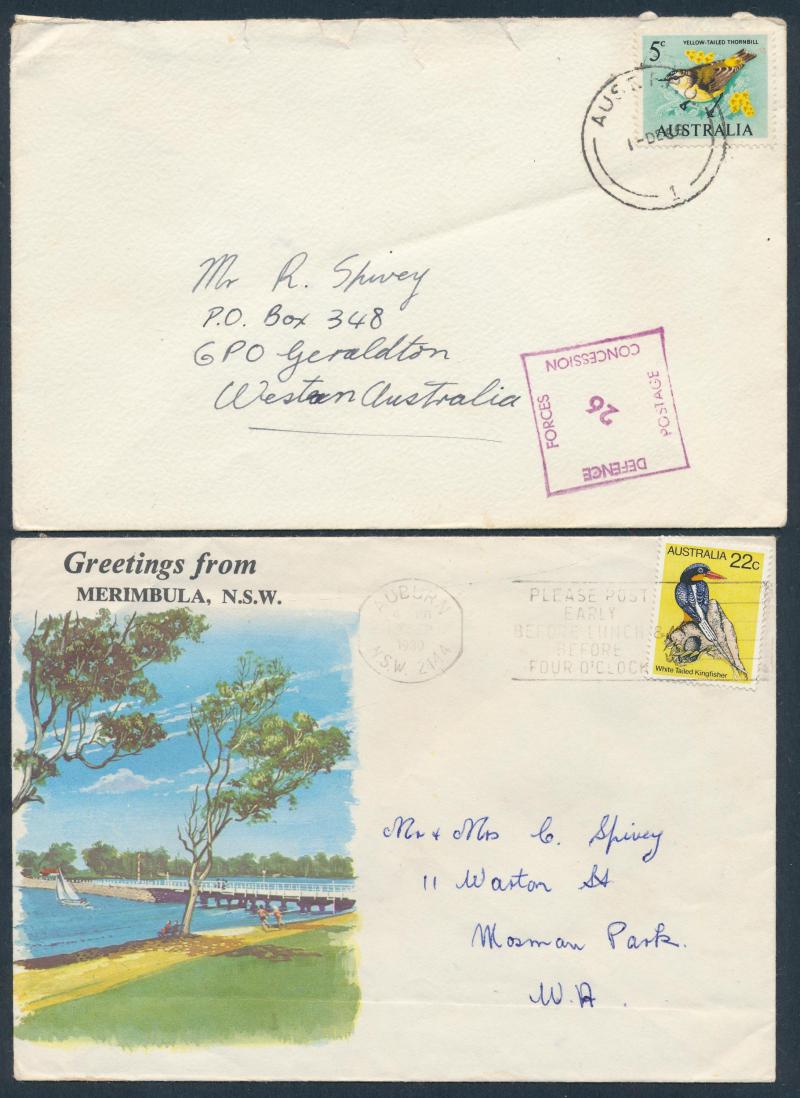 5c YELLOW-TAILED THORNBILL
AUSTRALIA
AUS.F.P.O.
1-DEC
1
Mr R. Spivey
P.O. Box 348
GPO Geraldton
Western Australia
DEFENCE
FORCES
POSTAGE
CONCESSION
Greetings from
MERIMBULA, N.S.W.
AUBURN
1980
N.S.W. 2144
PLEASE POST
EARLY
BEFORE LUNCH &
BEFORE
FOUR O'CLOCK
AUSTRALIA 22c
White Tailed Kingfisher
Mr & Mrs C. Spivey
11 Warton St
Mosman Park.
W.A.